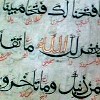 فتحنا لك فتحا مبينا
لك الله ما تقدم
من ذنبك وما تأخر